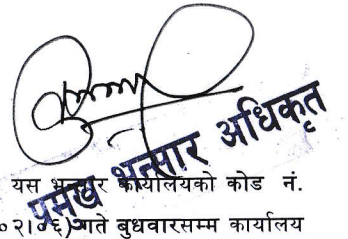 प्रमुख भन्सार अधिकृत
यस भन्सार कार्यालयको कोड नं.
०२।०६)गते बुधवारसम्म कार्यालय